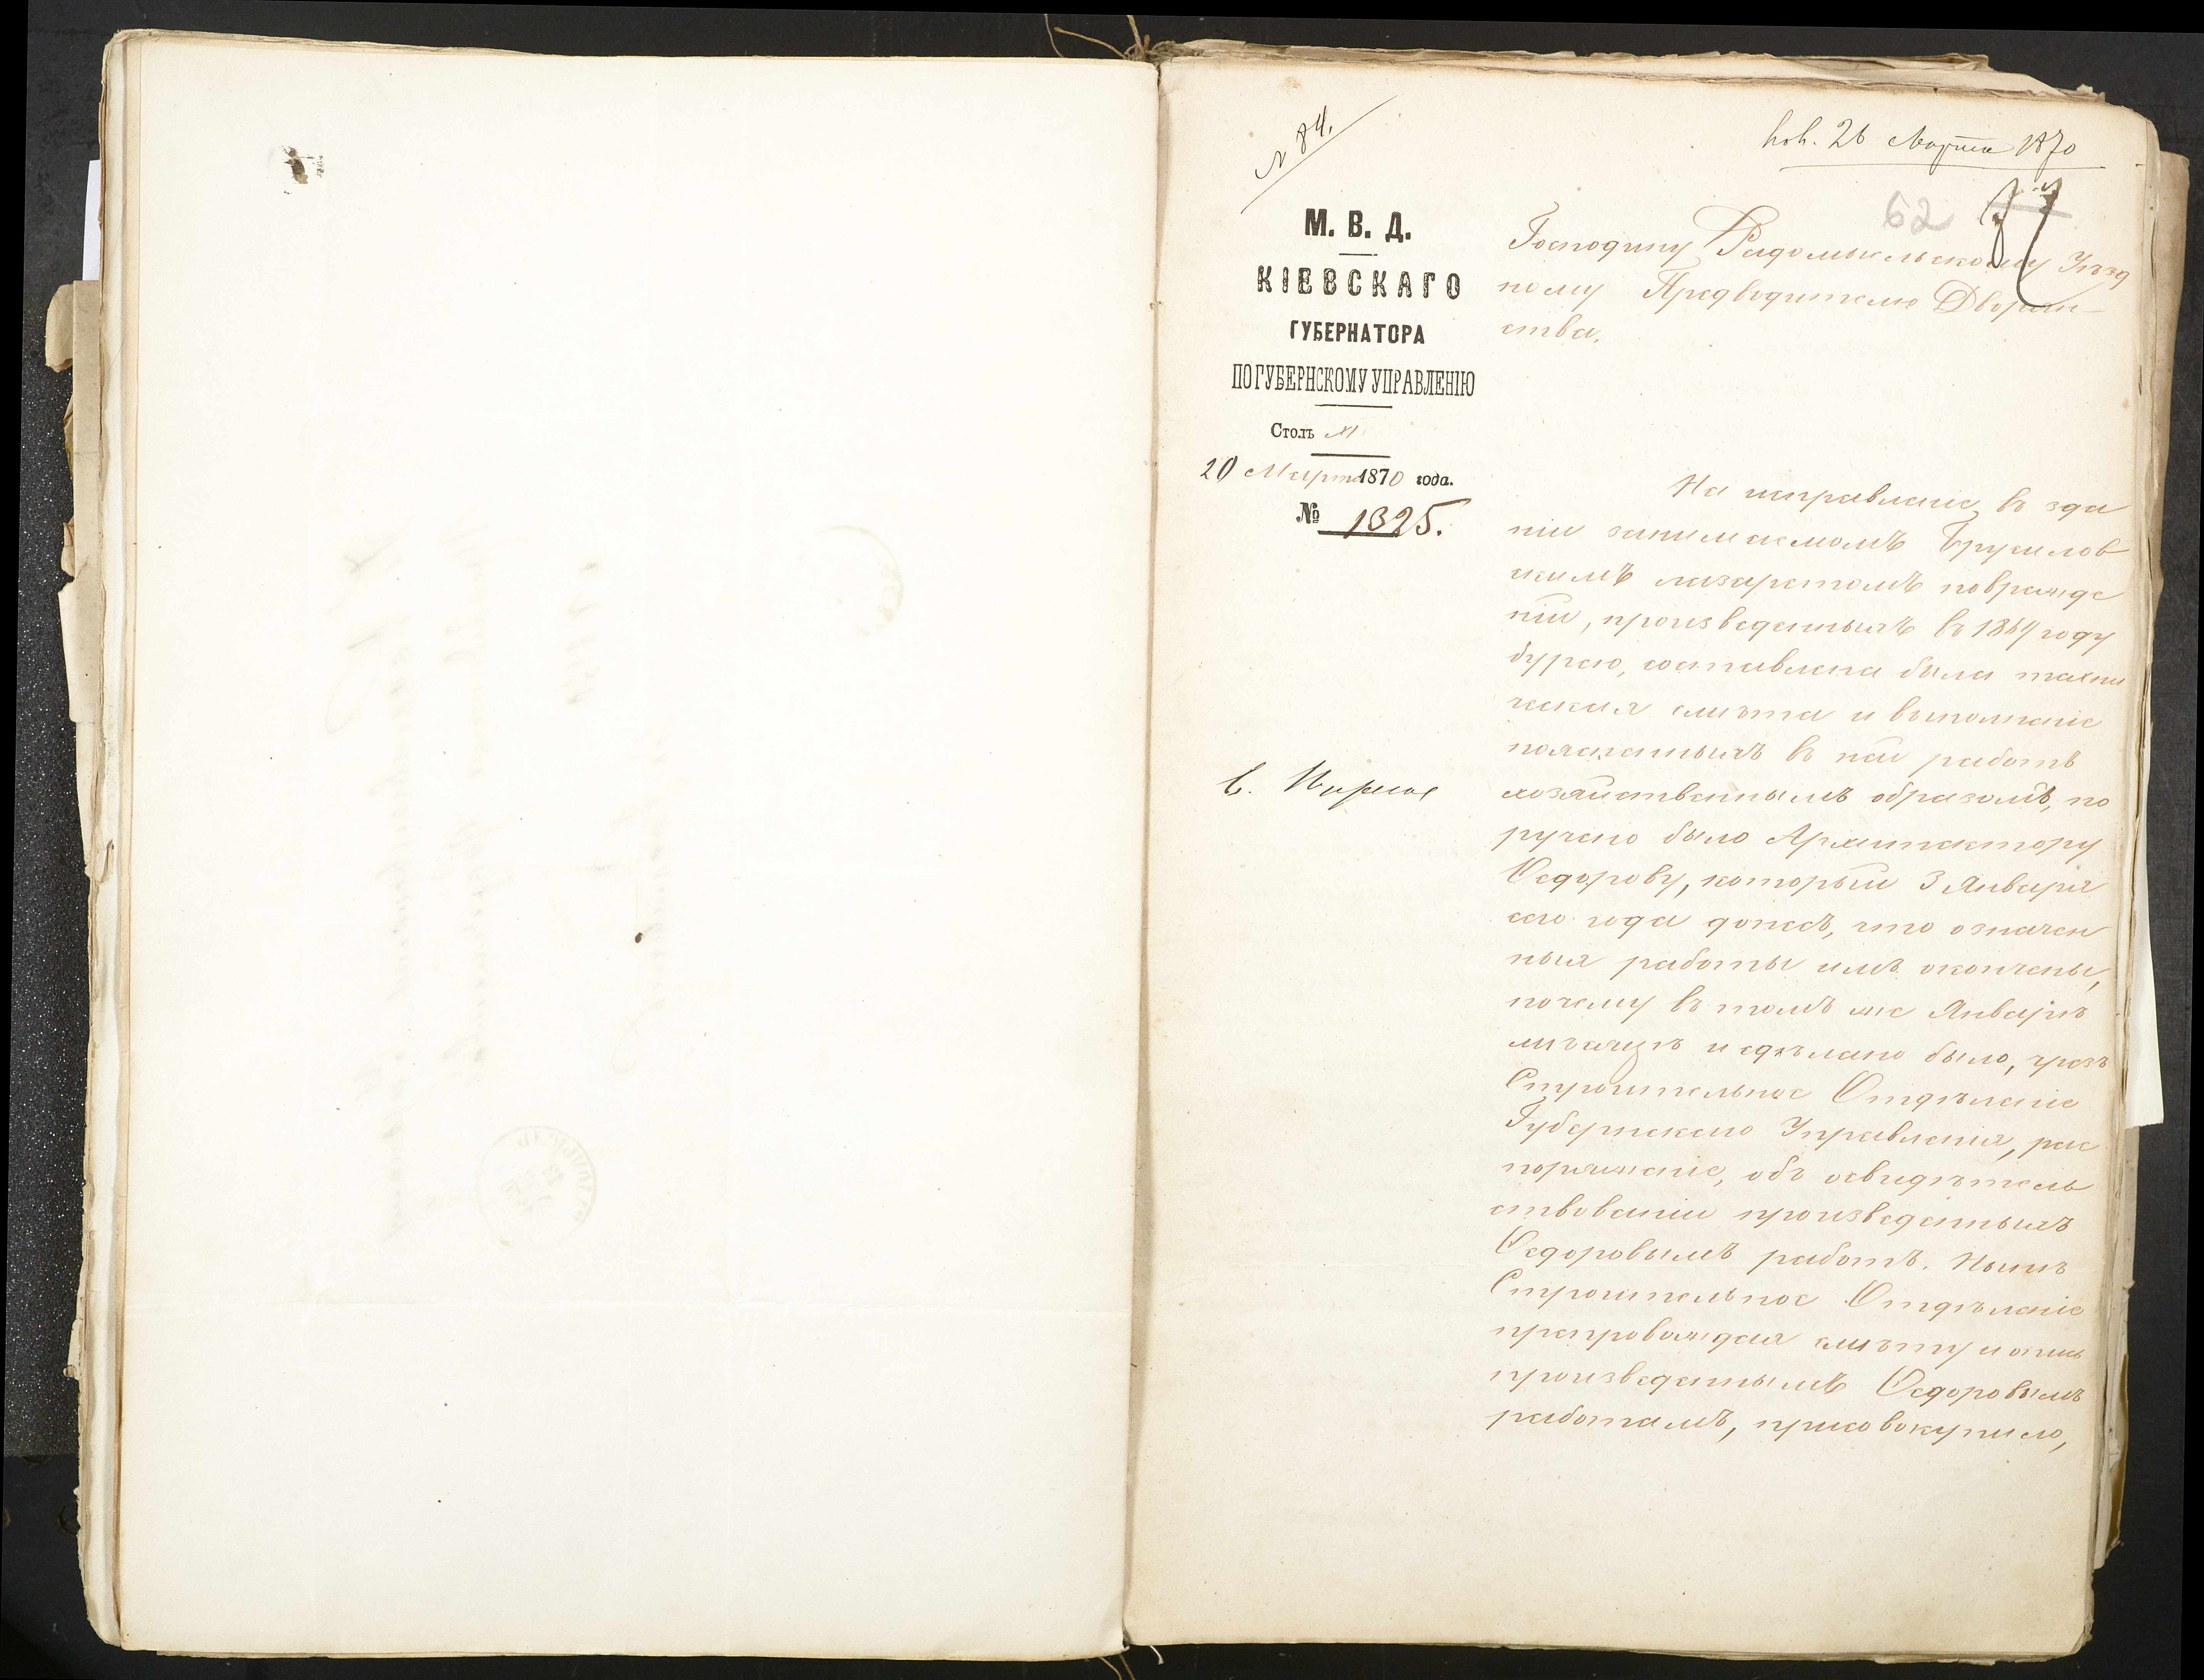 № 84.
пол. 26 Марта 1870
62
77
М. В. Д.
КІЕВСКАГО
ГУБЕРНАТОРА
ПО ГУБЕРНСКОМУ УПРАВЛЕНІЮ
Столъ
20 Марта 1870 года.
№ 1325.
Господину Радомысльскому Уѣзд
ному Предводителю Дворян-
ства.
На исправленіе въ зда
ніи занимаемомъ Брусилов
скимъ лазаретомъ поврежде
ній, произведенныхъ въ 1869 году
бурею, составлена была техни
ческая смѣта и выполненіе
показанныхъ въ ней работъ
хозяйственнымъ образомъ, по
ручено было Архитектору
Федорову, который 3 Января
сего года донесъ, что означен
ныя работы имъ окончены,
почему въ томъ же Январѣ
мѣсяцѣ и сдѣлано было, чрезъ
Строительное Отдѣленіе
Губернскаго Управленія, рас
поряженіе, объ освидѣтель
ствованіи произведенныхъ
Федоровымъ работъ. Нынѣ
Строительное Отдѣленіе
препровождая смѣту и опись
произведеннымъ Федоровымъ
работамъ, присовокупило,